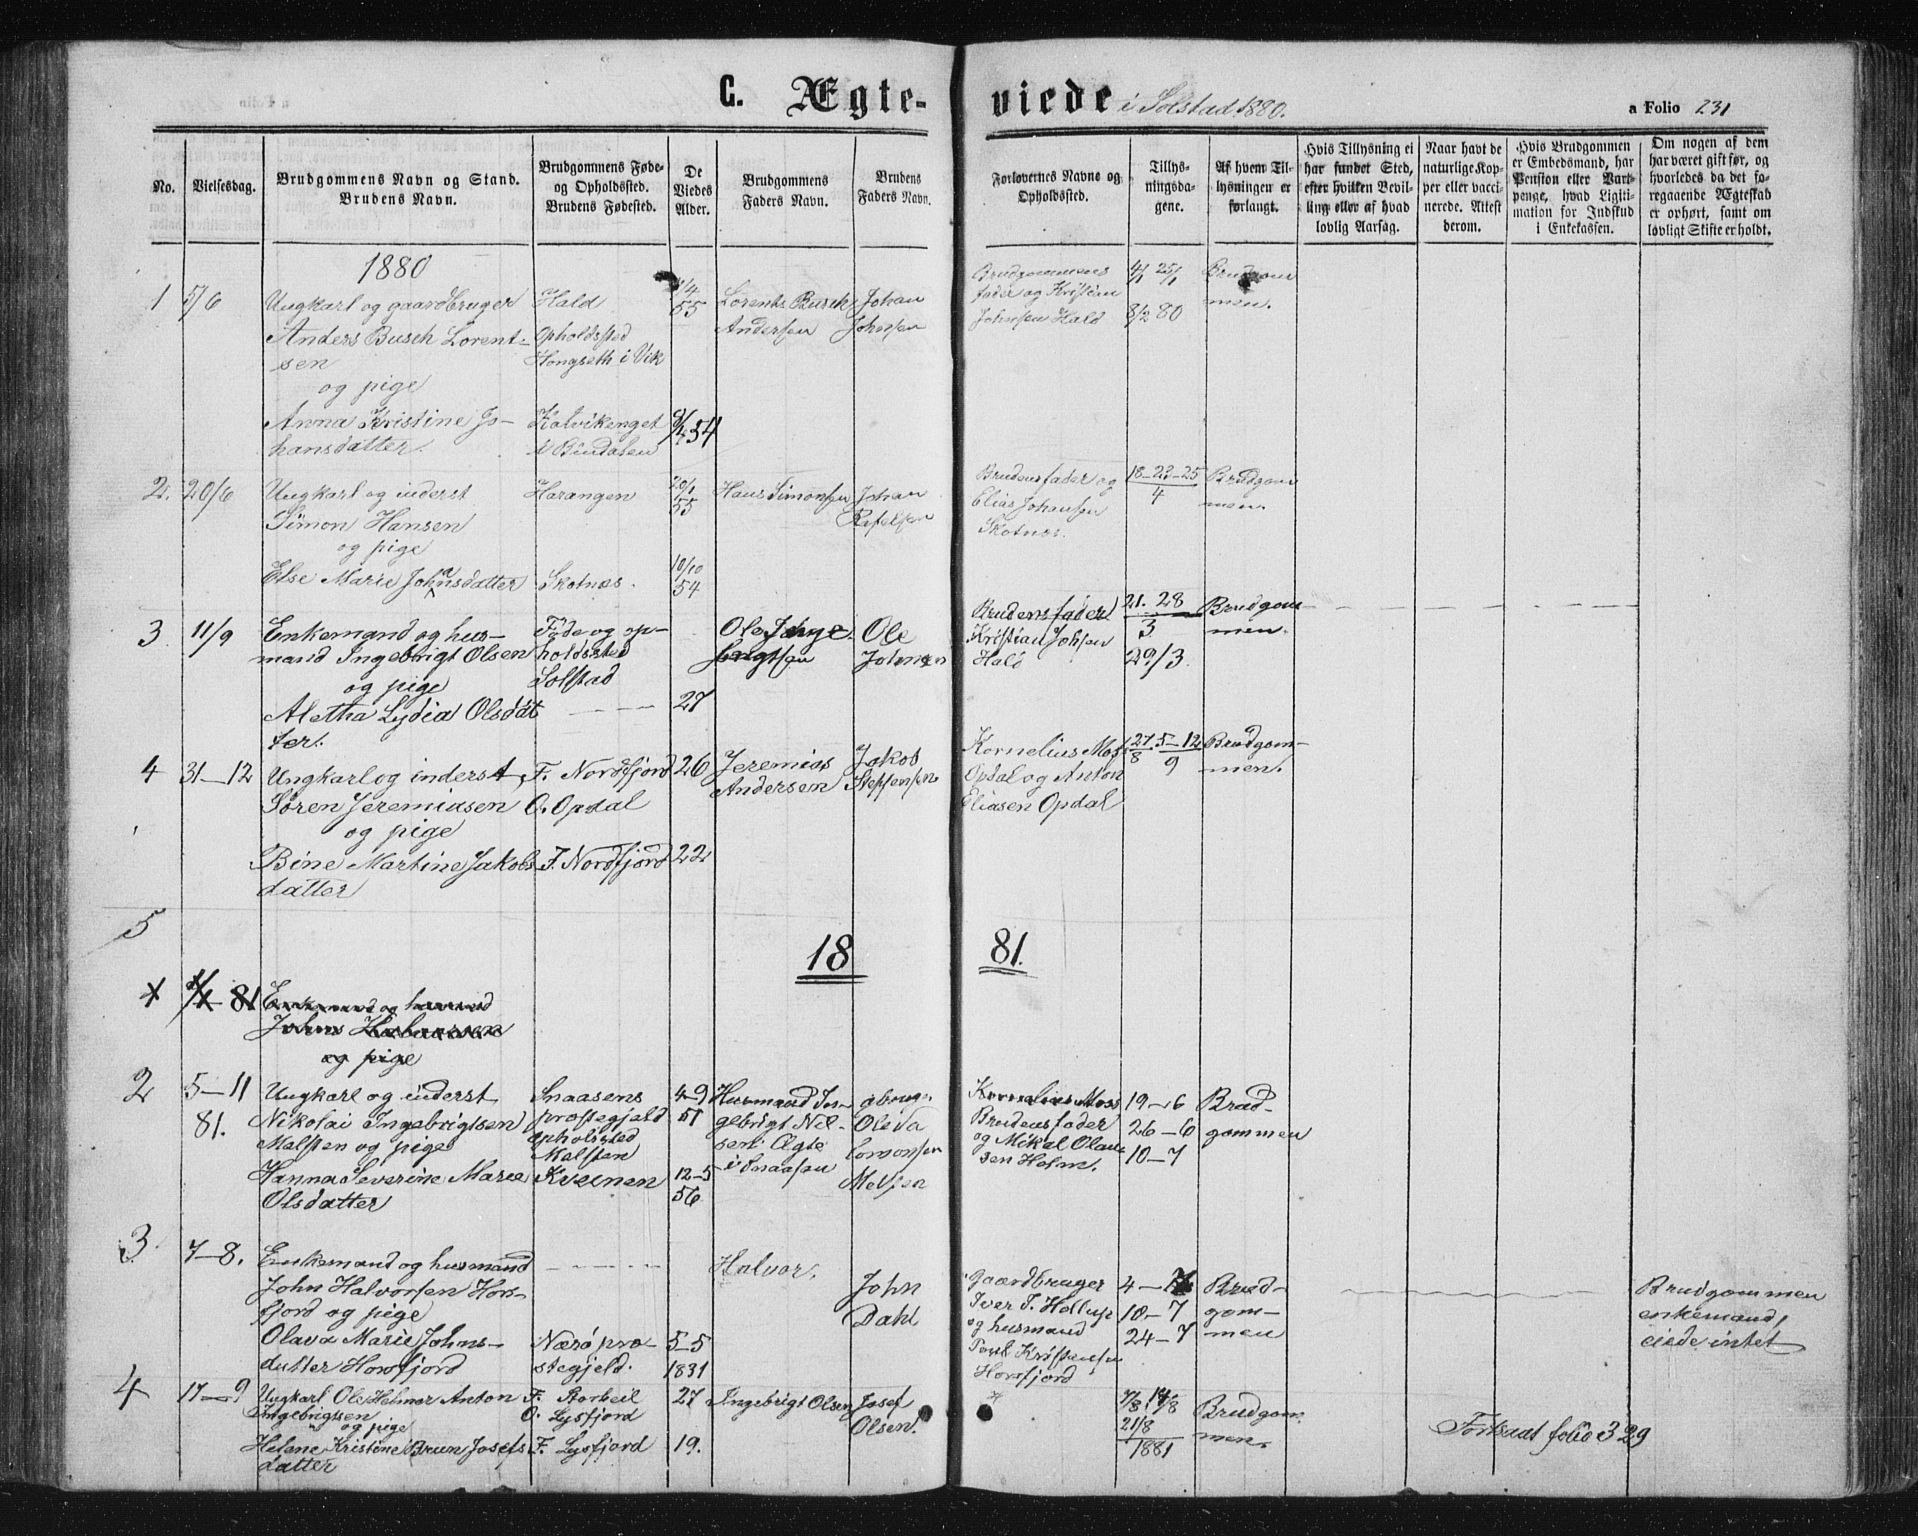 C. Ægte-
viede i Solstad 1880.
a Folio 231
No.
Vielsesdag.
Brudgommens Navn og Stand.
Brudens Navn.
Brudgommens Føde-
og Opholdssted.
Brudens Fødested.
De
Viedes
Alder.
Brudgommens
Faders Navn.
Brudens
Faders Navn.
Forlovernes Navne og
Opholdssted.
Tillys-
ningsda-
gene.
Af hvem Til-
lysningen er
forlangt.
Hvis Tillysning ei
har fundet Sted,
efter hvilken Bevil-
ling eller af hvad
lovlig Aarsag.
Naar havt de
naturlige Kop-
per eller vacci-
nerede. Attest
derom.
Hvis Brudgommen
er Embedsmand, har
Pension eller Vart-
penge, hvad Ligiti-
mation for Indskud
i Enkekassen.
Om nogen af dem
har været gift før, og
hvorledes da det fo-
regaaende Ægteskab
er ophørt, samt om
lovligt Skifte er holdt.
1880
1
5/6
Ungkarl og gaardbruger
Anders Busch Lorent-
sen
og pige
Anna Kristine Jo-
hansdatter.
Hald
Opholdssted
Hongseth i Vik
Kalvikenget
i Bindalen
55
54
Lorents Busch
Andersen
Johan
Johnsen
Brudgommens
fader og Kristian
Johnsen Hald
4/1 25/1
8/2 80
Brudgom
men.
2.
20/6
Ungkarl og inderst
Simon Hansen
og pige
Else Marie Johansdatter
Harangen
Skotnæs.
20/1
55
10/10
54
Hans Simonsen
Johan
Rafelsen
Brudens fader og
Elias Johansen
Skotnæs.
18-23-25
4
Brudgom
men.
3
11/9
Enkemand og hus-
mand Ingebrigt Olsen
og pige
Aletha Lydia Olsdat
ter.
Føde og op-
holdssted
Solstad
27
Ole Inge
brigtsen
Ole
Johnsen
Brudens fader
Kristian Johsen
Hald
21. 28
3
29/3.
Brudgom-
men.
4
31-12
Ungkarl og inderst,
Søren Jeremiasen
og pige
Bine Martine Jakobs
datter
F. Nordfjord
O. Opdal
F. Nordfjord
26
22
Jeremias
Andersen
Jakob
Steffensen
Kornelius Mos
Opdal og Anton
Eliasen Opdal
27. 5-12
8 9
Brudgom-
men.
5
18
81.
81
Enkemand og husmand
og pige
2
5-11
81.
Ungkarl og inderst
Nikolai Ingebrigtsen
Malsten og pige
Hanna Severine Marie
Olsdatter
Snaasens
prestegjeld
opholdsted
Malsten
Kveinen
4-9
57
12-5
56
Husmand In-
gebrigt Nil-
sen: Ægte
i Snaasen
Kornelius Moss
Brudens fader
og Mikal Olau
sen Helm.
19-6
26-6
10-7
Brud-
gommen
3.
7-8.
Enkemand og husmand
John Halvorsen Hors-
fjord og pige
Olava Marie Johns-
datter Horsfjord
Nærø præ
stegjeld.
5-5
1831
Halvor.
John
Dahl
Gaardbruger
Iver T. Hollup
og husmand
Horsfjord
10-7
24-7
Brud-
gom-
men
Brudgommen
enkemand,
eiede intet
4
17-9
Ungkarl Ole Helmer Anton
Ingebrigtsen
og pige
Helene Kristine Brun Josefs
datter
O. Lysfjord
F. Lysfjord
27
19.
Ingebrigt Olsen
Josef
Olsen.
7/8 14/8
21/8
1881
Brudgom
men.
Fortsaat folio 329